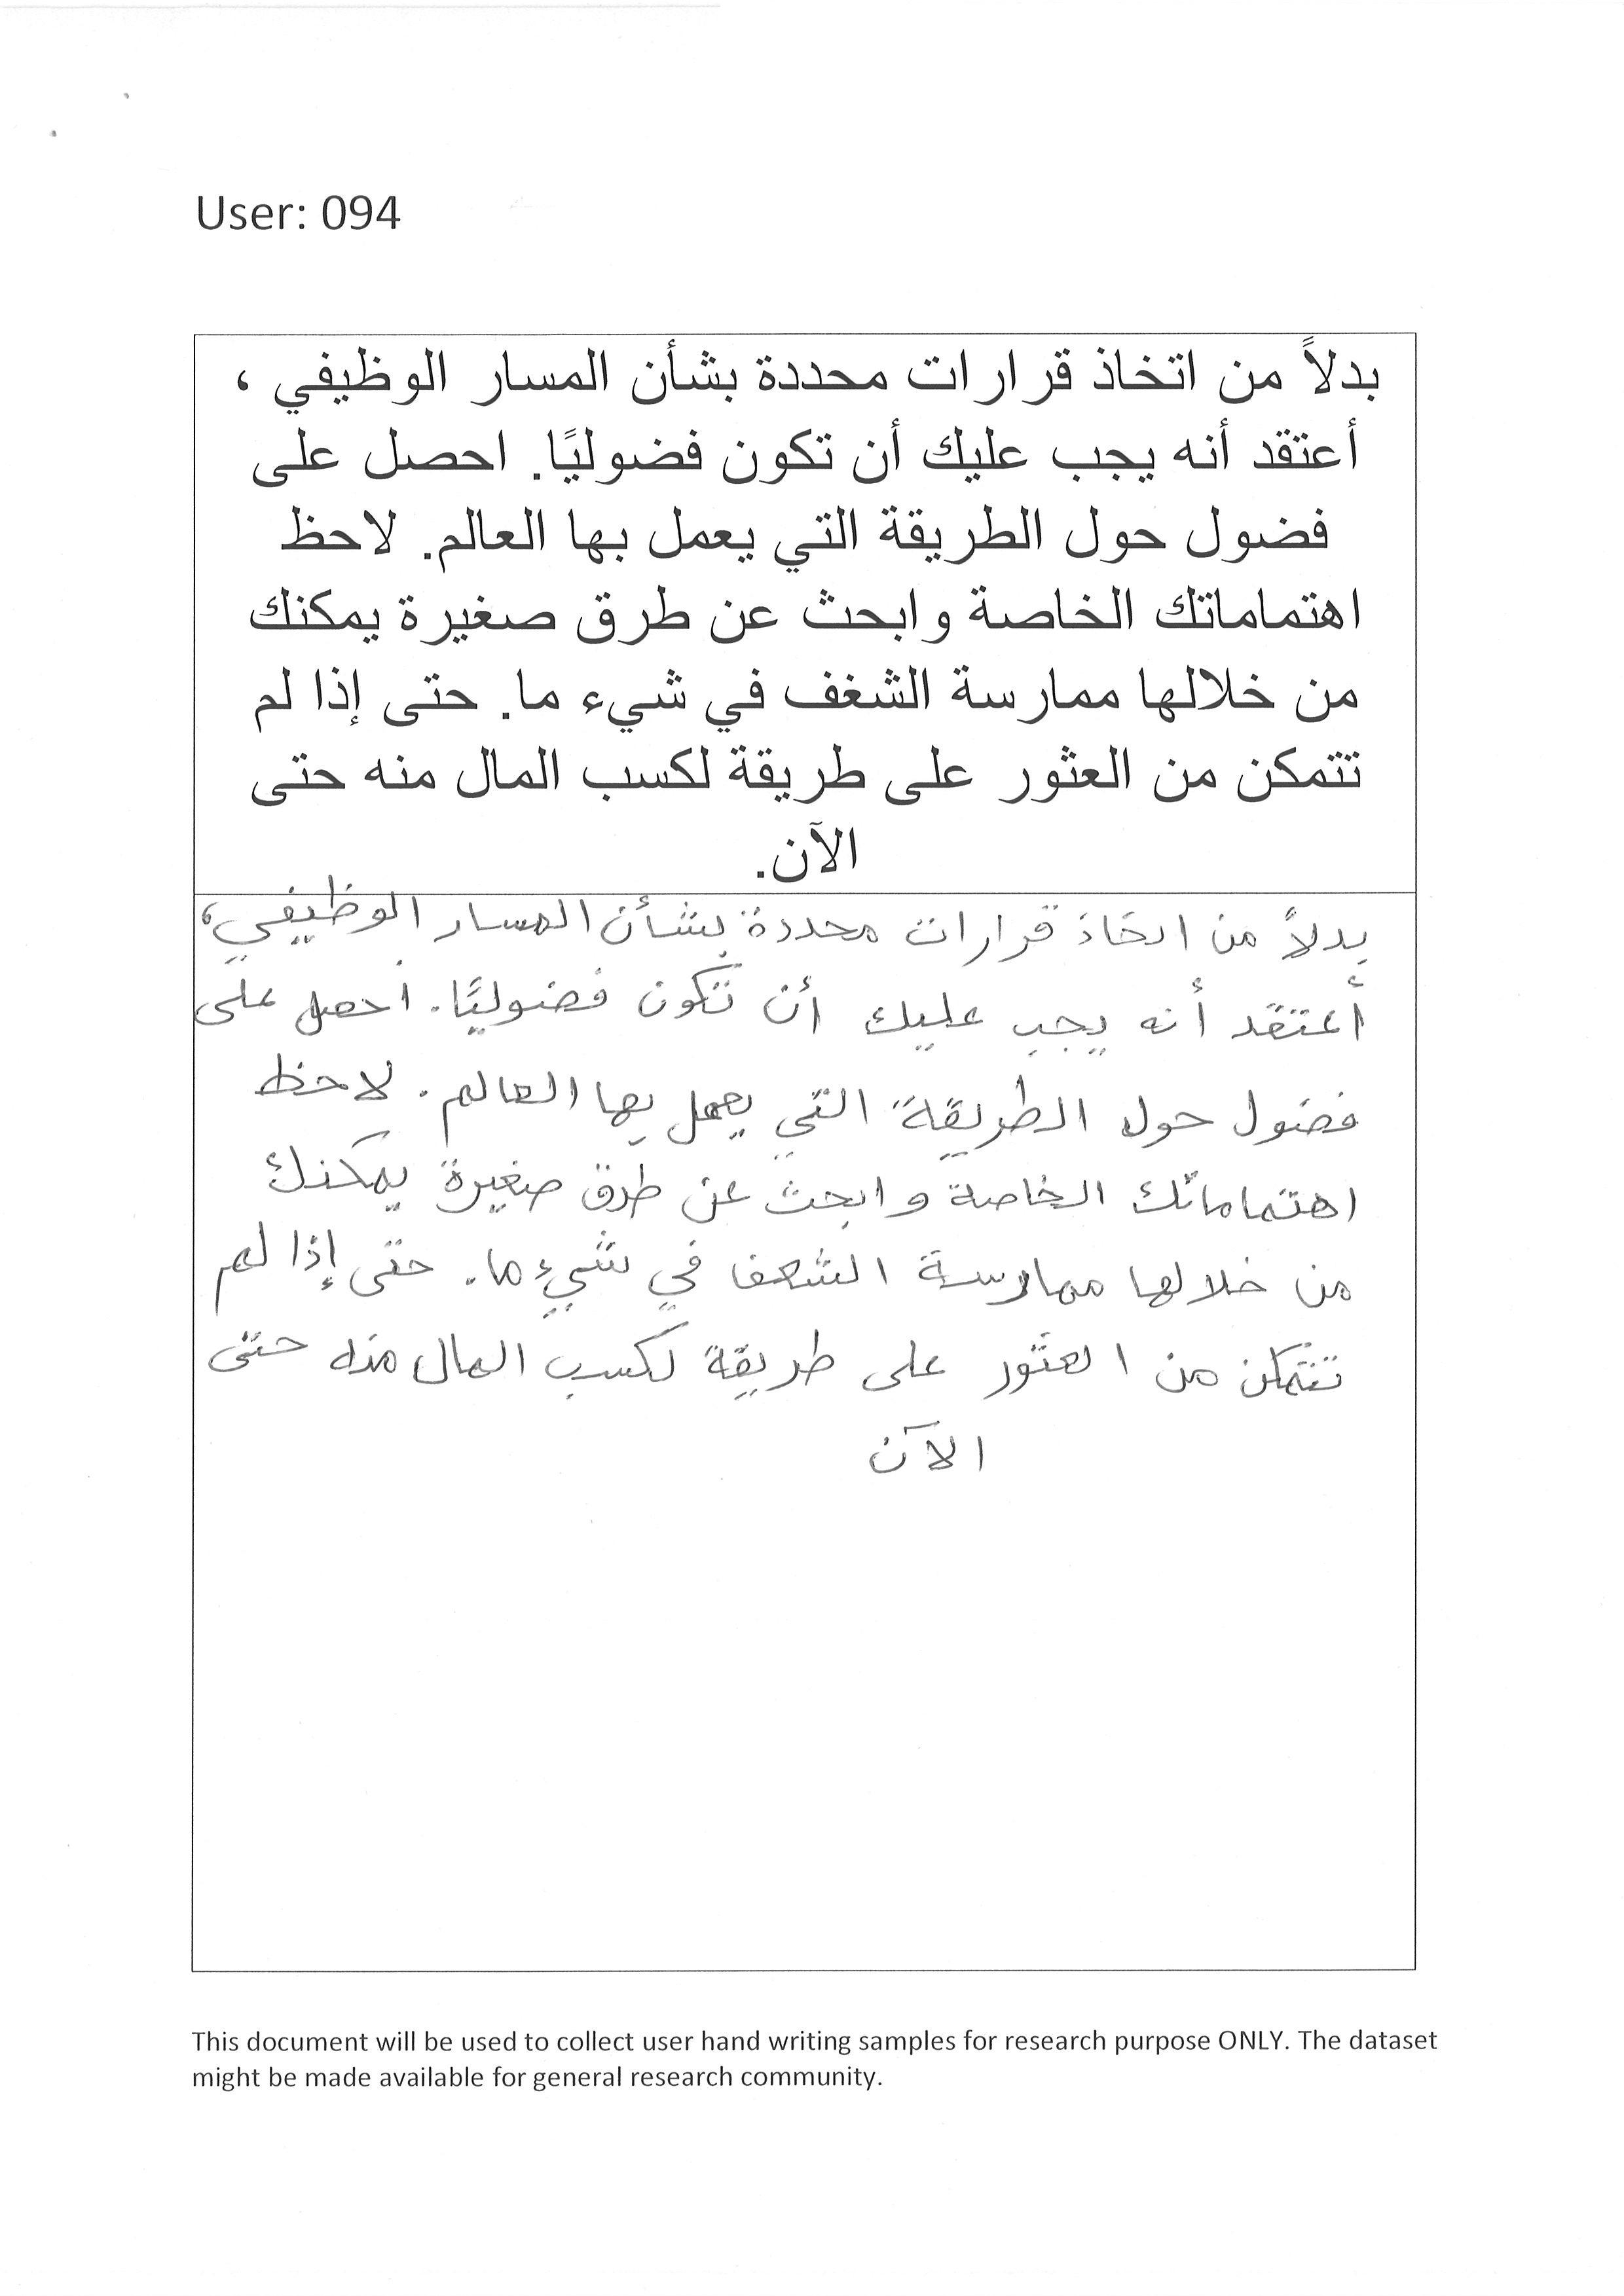 User: 094
بدلاً من اتخاذ قرارات محددة بشأن المسار الوظيفي ،
أعتقد أنه يجب عليك أن تكون فضوليًا. احصل على
فضول حول الطريقة التي يعمل بها العالم. لاحظ
اهتماماتك الخاصة وابحث عن طرق صغيرة يمكنك
من خلالها ممارسة الشغف في شيء ما. حتى إذا لم
تتمكن من العثور على طريقة لكسب المال منه حتى
الآن.
بدلاً من اتخاذ قرارات محددة بشأن المسار الوظيفي،
أعتقد أنه يجب عليك أن تكون فضوليًا. احصل على
فضول حول الطريقة التي يعمل بها العالم. لاحظ
اهتماماتك الخاصة وابحث عن طرق صغيرة يمكنك
من خلالها ممارسة الشغف في شيء ما. حتى إذا لم
تتمكن من العثور على طريقة لكسب المال منه حتى
الآن
This document will be used to collect user hand writing samples for research purpose ONLY. The dataset
might be made available for general research community.